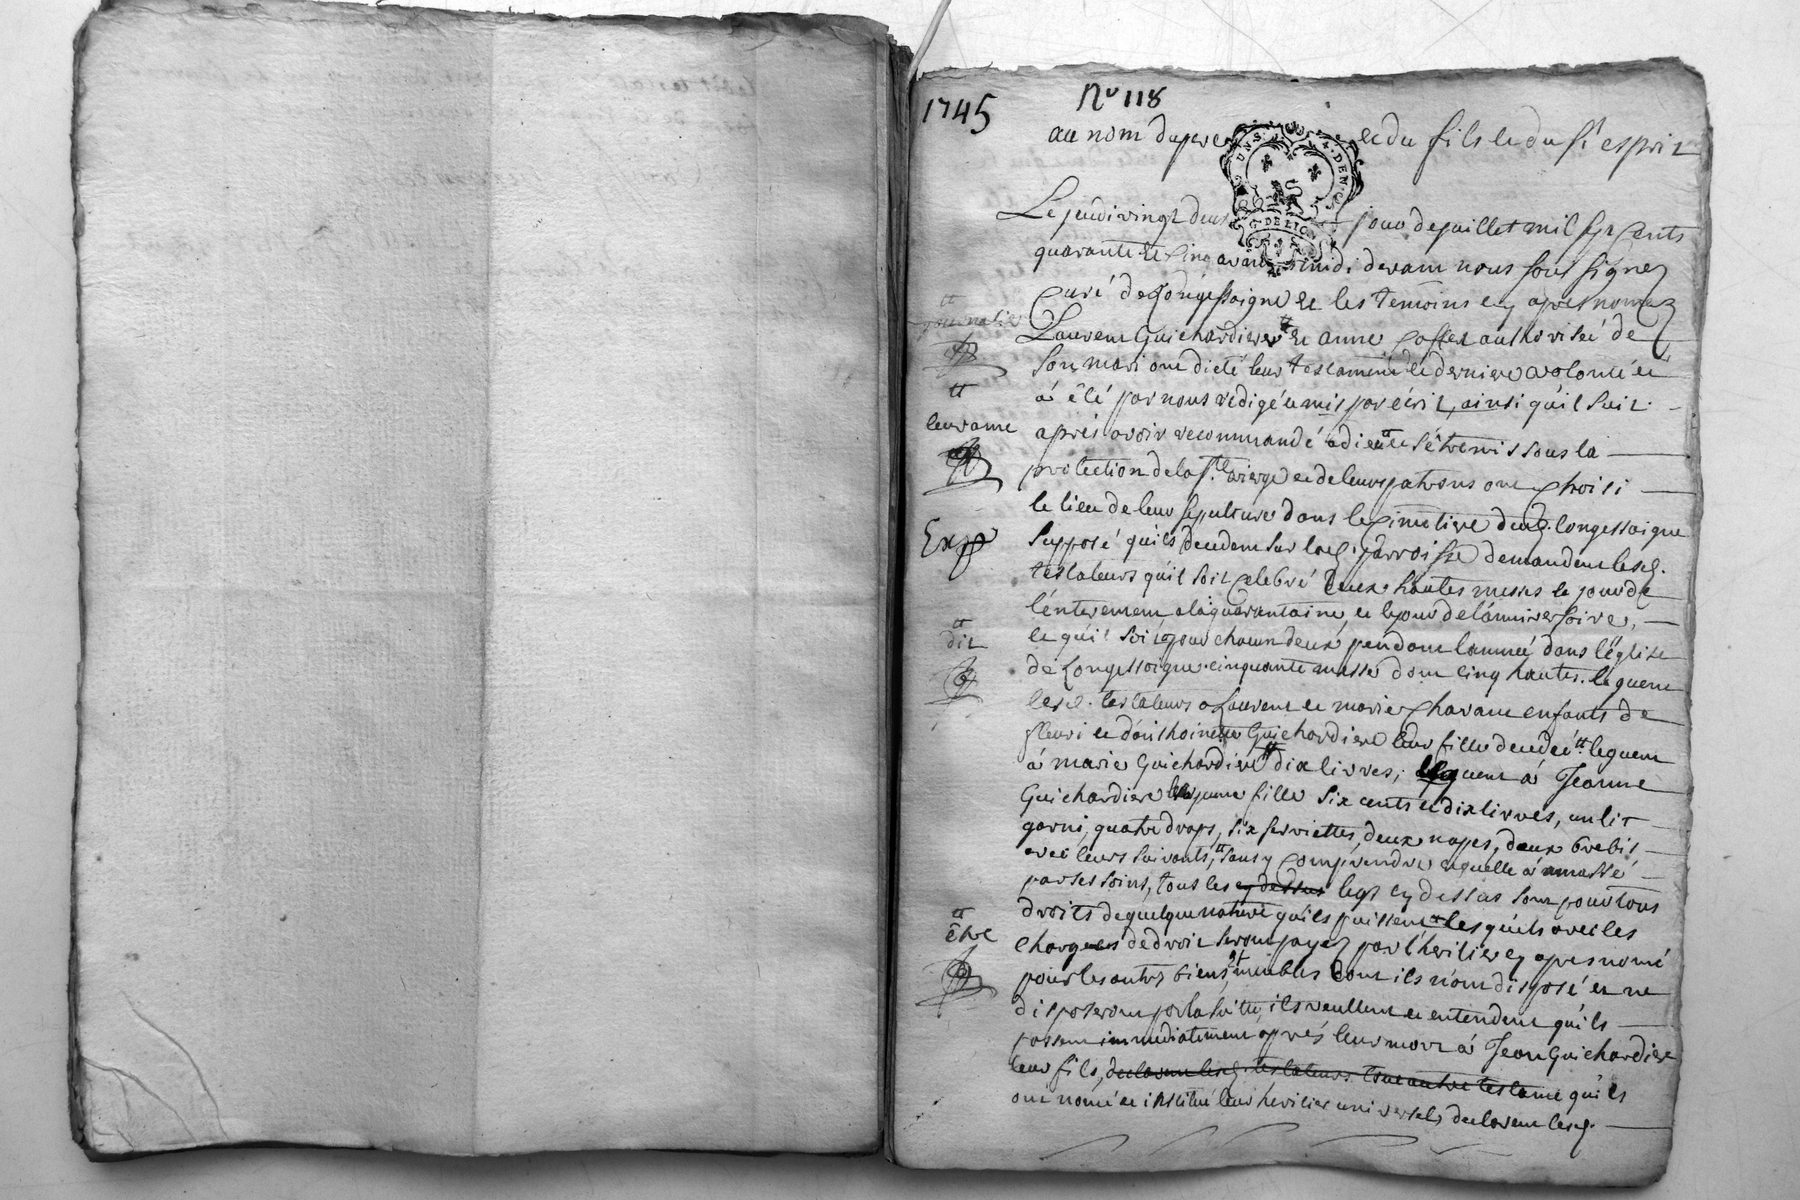 1745
No 118
au nom du pere et du fils et du st esprit
Le jeudi vingt deux jour de juillet mil sept cents
quarante et cinq avant midi devant nous sous signez
Curé de Longessaigne et les temoins cy apres nomez
journalier
Laurent Guichardiere tt et anne authorisée de
son mari ont dicté leur testament et derniere volonté et
tt
à été par nous redigé et mis par écrit, ainsi qu'il suit.
leur ame
apres avoir recommandé à dieu tt et s'étre mis sous la
protection de la ste vierge et de leurs patrons ont choisi
le lieu de leur sepulture dans le cimetiere dud. longessaigne
Exp
supposé qu'ils decedent sur lad. parroisse demandent lesd.
testateurs qu'il soit celebré deux hautes messes le jour de
l'enterement, a la quarantaine, et le jour de l'anniversaire,
tt
dit
et qu'il soit pour chacun deux pendant l'année dans l'église
de Longessaigne cinquante messe dont cinq hautes. leguent
lesd. testateurs a Laurent et marie Chavant enfants de
fleuri et d'anthoinette Guichardiere leur fille decedeé tt leguent
à marie Guichardiere tt dix livres; leguent à Jeanne
Guichardiere jeune fille six cents et dix livres, un lit
garni, quatre draps, six serviettes, deux napes, deux brebis
avec leurs suivants, tt sans y comprendre ce quelle à amassé
par ses soins, tous les cy dessus legs cy dessus sont pour tous
tt
droits de quelque nature qu'ils puissent tt lesquels avec les
être
charges de droit seront payez par l'heritier cy apres nomé
pour les autres biens, meubles dont ils n'ont disposé et ne
disposeront par la suitte, ils veullent et entendent qu'ils
passent immediatement aprés leur mort à Jean Guichardiere
leur fils, declarent lesd. testateurs tout autre testame qu'ils
ont nomé et institué leur heritier universels declarent lesd.